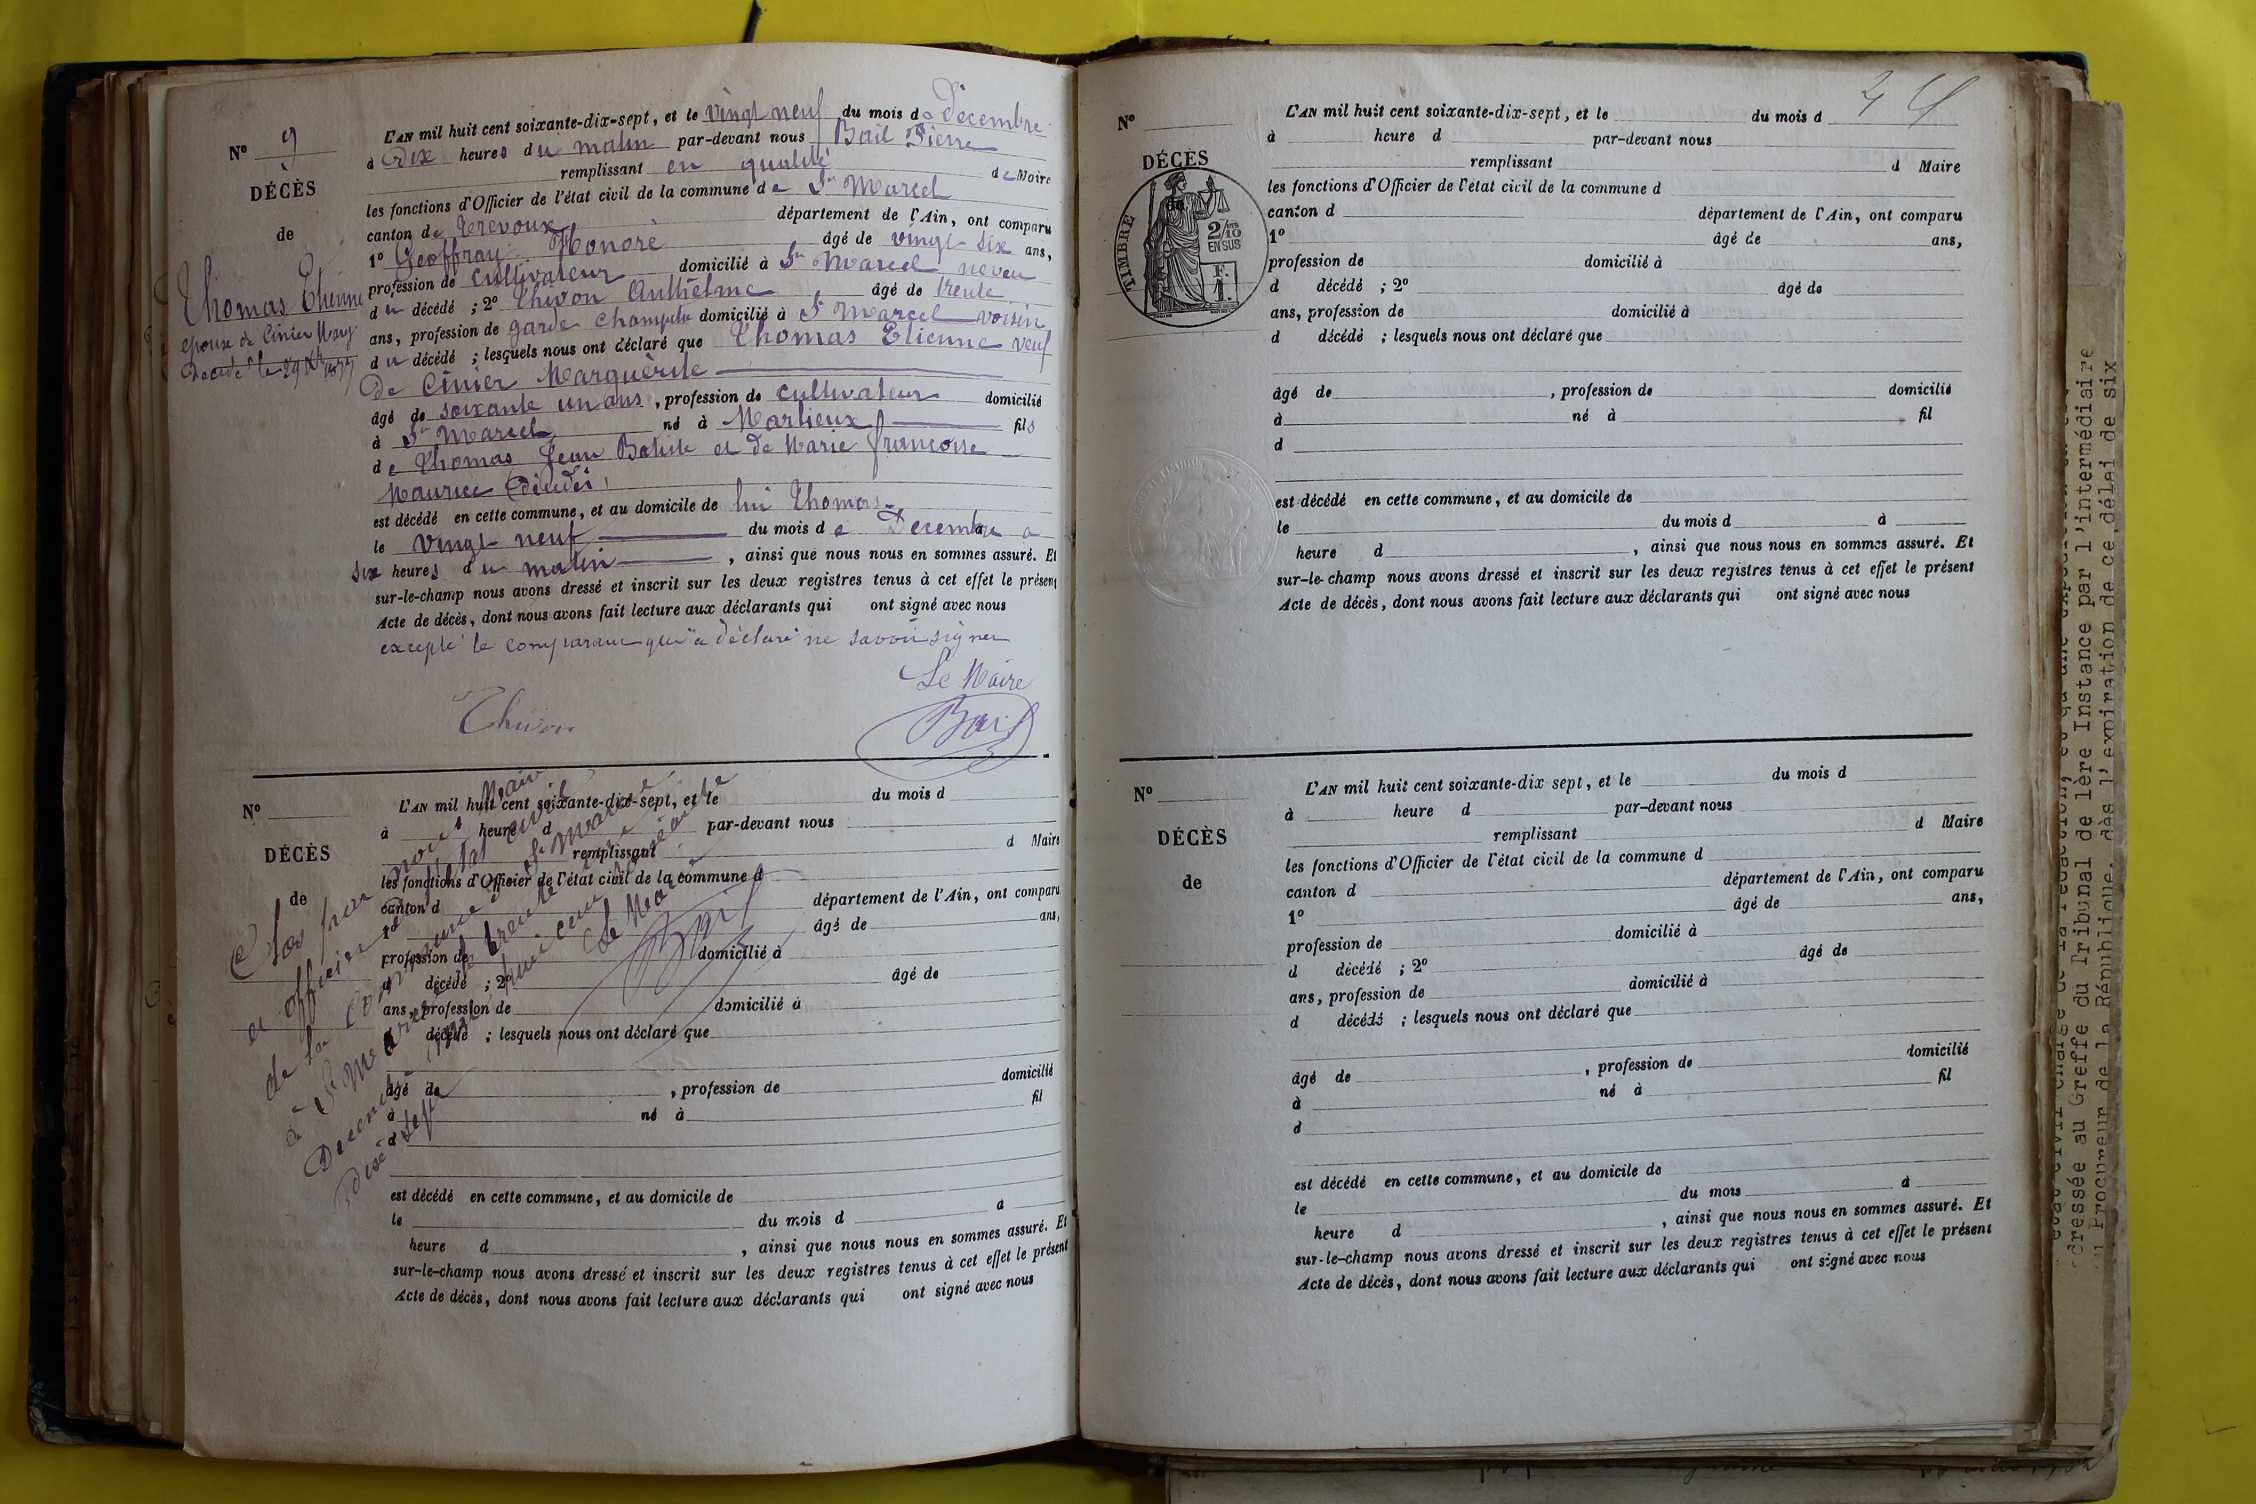 N° 9
DÉCÈS
de
Thomas Etienne
epoux de Cinier Marg
Décédé le 29 Xbre 1877
L'AN mil huit cent soixante-dix-sept, et le vingt neuf du mois de Décembre
à Dix heures du matin par-devant nous Bail Pierre
remplissant en qualité de Maire
les fonctions d'Officier de l'état civil de la commune de St Marcel
canton de Trevoux département de l'Ain, ont comparu
1° Geoffray Honoré âgé de vingt-six ans,
profession de cultivateur domicilié à St Marcel neveu
du décédé ; 2° Thivon Anthelme âgé de trente
ans, profession de garde champetre domicilié à St Marcel voisin
du décédé ; lesquels nous ont déclaré que Thomas Etienne veuf
De Cinier Marguerite
âgé de soixante un ans, profession de cultivateur domicilié
à St Marcel né à Marlieux fils
de Thomas Jean Batiste et de Marie françoise
Maurice Décédés
est décédé en cette commune, et au domicile de lui Thomas
le vingt neuf du mois de Decembre a
six heures du matin, ainsi que nous nous en sommes assuré. Et
sur-le-champ nous avons dressé et inscrit sur les deux registres tenus à cet effet le présent
Acte de décès, dont nous avons fait lecture aux déclarants qui ont signé avec nous
excepté le comparant qui a déclaré ne savoir signer
Le Maire
Thivon
Bail
N°
DÉCÈS
de
L'AN mil huit cent soixante-dix-sept, et le du mois d
à heure d par-devant nous
remplissant d Maire
les fonctions d'Officier de l'état civil de la commune d
canton d département de l'Ain, ont comparu
1° âgé de ans,
profession de domicilié à
d décédé ; 2° âgé de
ans, profession de domicilié à
d décédé ; lesquels nous ont déclaré que
âgé de , profession de domicilié
à né à fil
d
est décédé en cette commune, et au domicile de
le du mois d a
heure d , ainsi que nous nous en sommes assuré. Et
sur-le-champ nous avons dressé et inscrit sur les deux registres tenus à cet effet le présent
Acte de décès, dont nous avons fait lecture aux déclarants qui ont signé avec nous
Clos par nous Maire
et officier de l'état civil
de la Commune de St Marcel
à St Marcel le trente
Decembre mil huit cent soixante
Dix sept
Le Maire
Bail
N°
DÉCÈS
de
TIMBRE
2/10
EN SUS
F.
1.
L'AN mil huit cent soixante-dix-sept, et le du mois d
à heure d par-devant nous
remplissant d Maire
les fonctions d'Officier de l'état civil de la commune d
canton d département de l'Ain, ont comparu
1° âgé de ans,
profession de domicilié à
d décédé ; 2° âgé de
ans, profession de domicilié à
d décédé ; lesquels nous ont déclaré que
âgé de , profession de domicilié
à né à fil
d
est décédé en cette commune, et au domicile de
le du mois d à
heure d , ainsi que nous nous en sommes assuré. Et
sur-le-champ nous avons dressé et inscrit sur les deux registres tenus à cet effet le présent
Acte de décès, dont nous avons fait lecture aux déclarants qui ont signé avec nous
N°
DÉCÈS
de
L'AN mil huit cent soixante-dix sept, et le du mois d
à heure d par-devant nous
remplissant d Maire
les fonctions d'Officier de l'état civil de la commune d
canton d département de l'Ain, ont comparu
1° âgé de ans,
profession de domicilié à
d décédé ; 2° âgé de
ans, profession de domicilié à
d décédé ; lesquels nous ont déclaré que
âgé de , profession de domicilié
à né à fil
d
est décédé en cette commune, et au domicile de
le du mois à
heure d , ainsi que nous nous en sommes assuré. Et
sur-le-champ nous avons dressé et inscrit sur les deux registres tenus à cet effet le présent
Acte de décès, dont nous avons fait lecture aux déclarants qui ont signé avec nous
dressée au Greffe du Tribunal de 1ère Instance par l'intermédiaire
Procureur de la République, dès l'expiration de ce délai de six